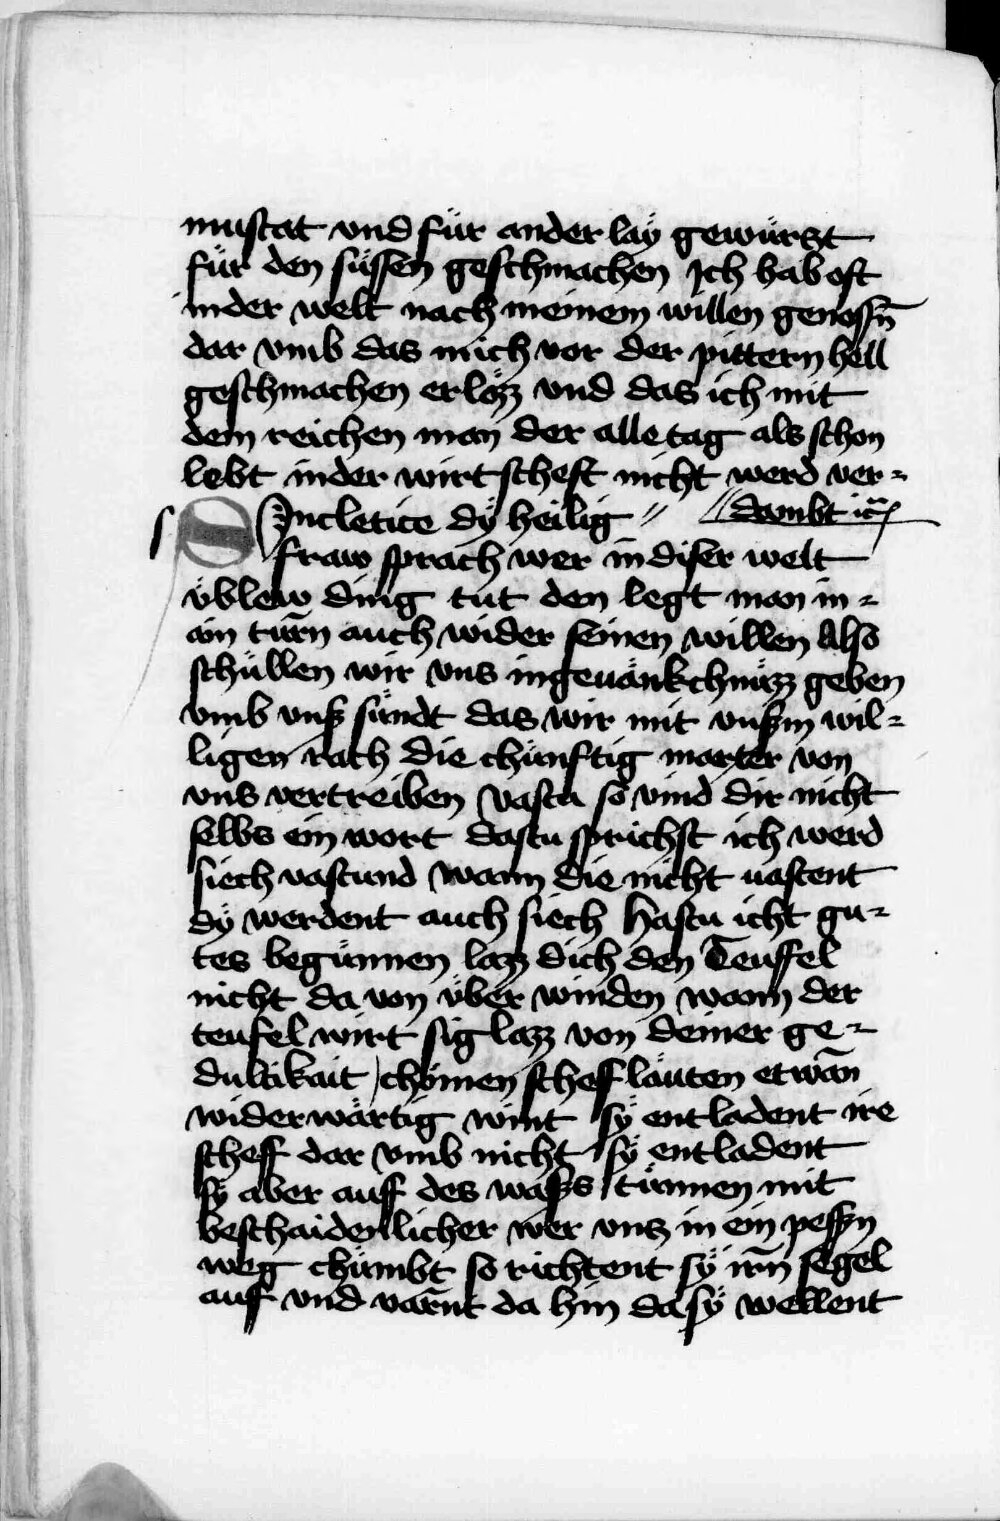 muscat vnd für ander laÿ gewürtzt
für den süssen geschmachen Ich hab oft
in der welt nach meinem willen genossn̄
dar vmb das mich vor der pittern hell
geschmachen erlözz vnd das ich mit
dem reichen man der alle tag als schon
lebt in der wirtscheft nicht werd ver-
dambt etc̄
Sincletice dÿ heilig
fraw sprach wer in diser welt
üblew ding tut den legt man in
ain turn̄ auch wider seinen willen Also
schüllen wir vns in geuänkchnüzz geben
vmb vnsz sündt das wir mit vnszm wil-
ligen rach die chünftig marter von
vns vertreiben Vastu so vind dir nicht
selbs ein wort dastu sprichst ich werd
siech vastund Wann die nicht uastent
dÿ werdent auch siech Hastu icht gu-
tes begünnen lazz dich den Teuffel
nicht da von über winden wann der
teufel wirt siglazz von deiner ge-
dultikait chömen schefläuten etwan̄
widerwärtig wint sÿ entladent ire
scheff dar vmb nicht sÿ entladent
sÿ aber auff des waszs tünnen mit
beschaidenlicher wer vntz in ein peszn
weg chümbt so richtent sÿ irn̄ segel
auf vnd varn̄t da hin da sÿ wellent